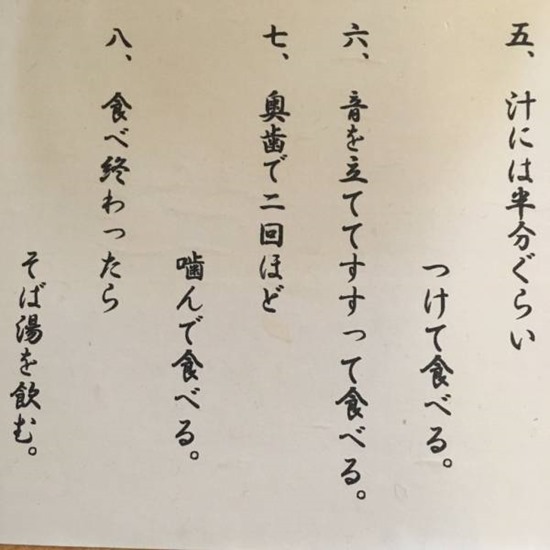 五、汁には半分ぐらい
つけて食べる。
六、音を立ててすすって食べる。
七、奥歯で二回ほど
噛んで食べる。
八、食べ終わったら
そば湯を飲む。